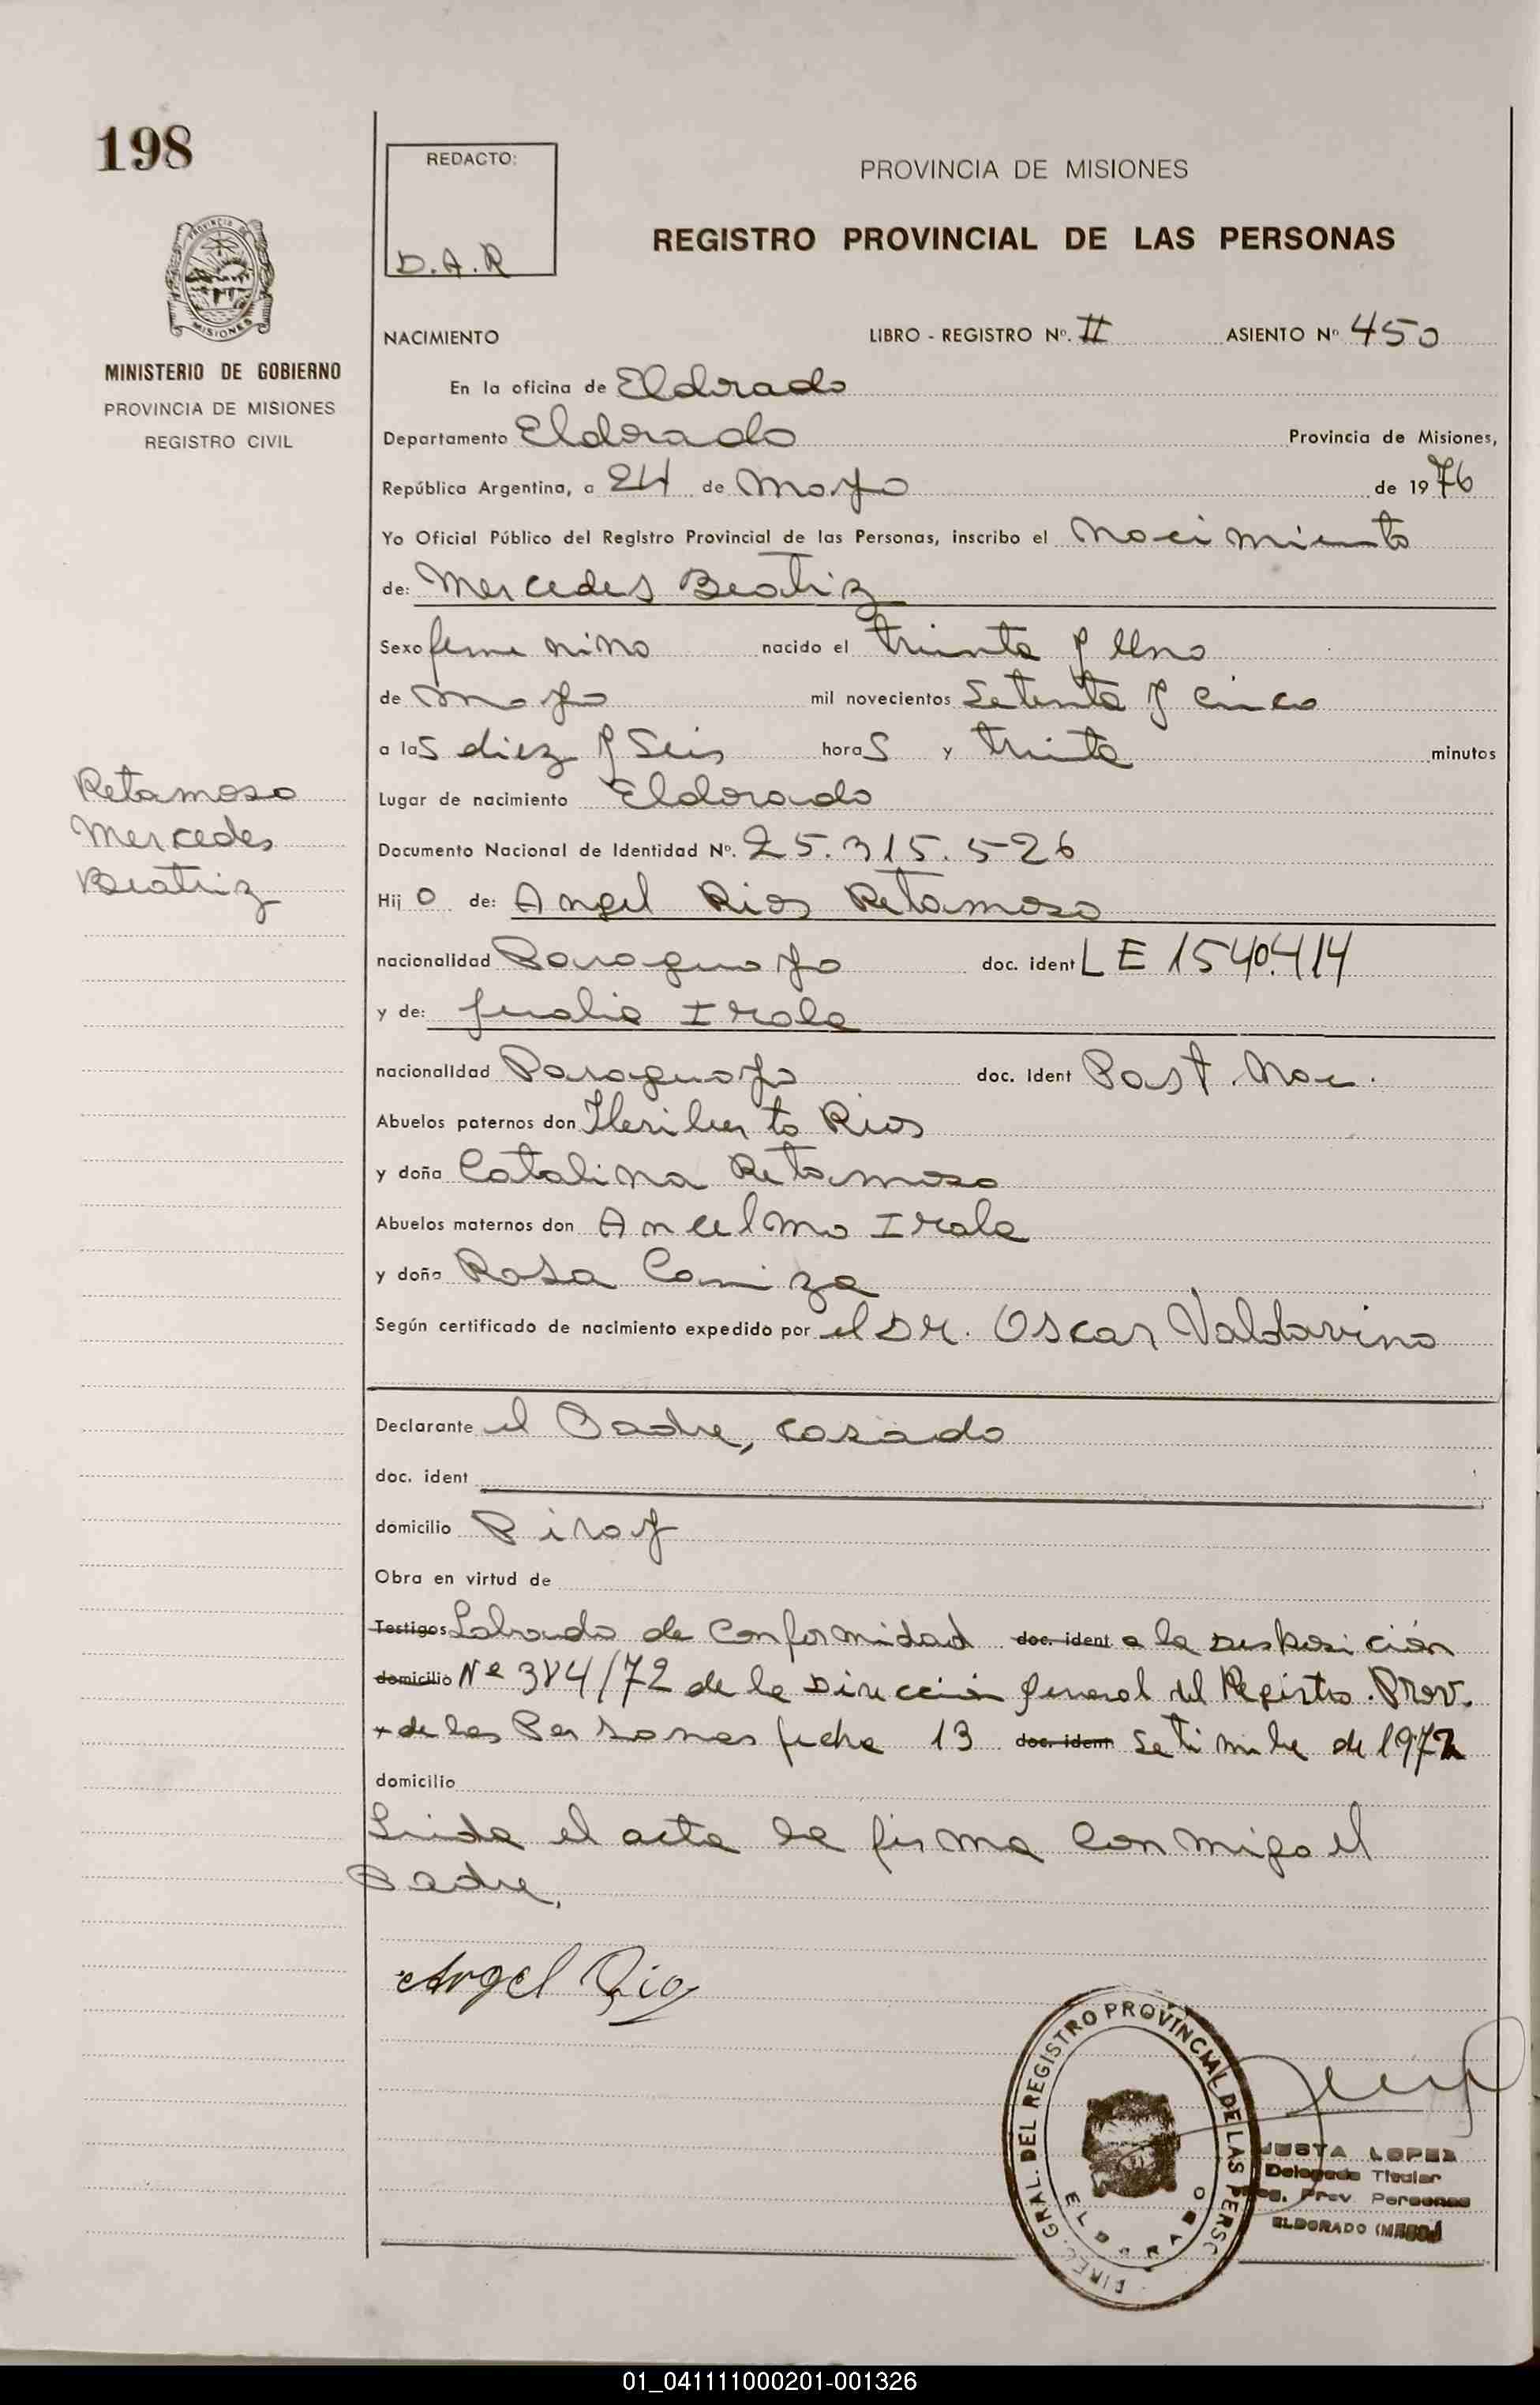 198
REDACTO:
D.A.R
PROVINCIA DE MISIONES
REGISTRO PROVINCIAL DE LAS PERSONAS
PROVINCIA DE
MISIONES
MINISTERIO DE GOBIERNO
PROVINCIA DE MISIONES
REGISTRO CIVIL
NACIMIENTO LIBRO - REGISTRO Nº. II ASIENTO Nº 450
En la oficina de Eldorado
Departamento Eldorado Provincia de Misiones,
República Argentina, a 24 de Mayo de 1976
Yo Oficial Público del Registro Provincial de las Personas, inscribo el Nacimiento
de: Mercedes Beatriz
Sexo femenino nacido el treinta y Uno
de Mayo mil novecientos Setenta y Cinco
a las diez y Seis horas y treinta minutos
Retamoso
Mercedes
Beatriz
Lugar de nacimiento Eldorado
Documento Nacional de Identidad Nº. 25.315.526
Hijo de: Angel Rios Retamoso
nacionalidad Paraguayo doc. ident LE 1540.414
y de: Irala
nacionalidad Paraguaya doc. Ident Part. Nac.
Abuelos paternos don Heriberto Rios
y doña Catalina Retamoso
Abuelos maternos don Ancelmo Irala
y doña Rosa Caniza
Según certificado de nacimiento expedido por el Dr. Oscar Valdovino
Declarante el Padre, casado
doc. ident
domicilio Piray
Obra en virtud de
Testigos Labrada de Conformidad doc. ident a la Disposición
domicilio Nº 384/72 de la Dirección General del Registro. Prov.
de las Personas fecha 13 doc. ident Setiembre de 1972
domicilio
Leida el acta la firma Conmigo el
Padre,
Angel Rios
DIREC. GRAL. DEL REGISTRO PROVINCIAL DE LAS PERSO
ELDORADO
JUSTA LOPEZ
Delegada Titular
Reg. Prov Personas
ELDORADO (MNES)
01_041111000201-001326